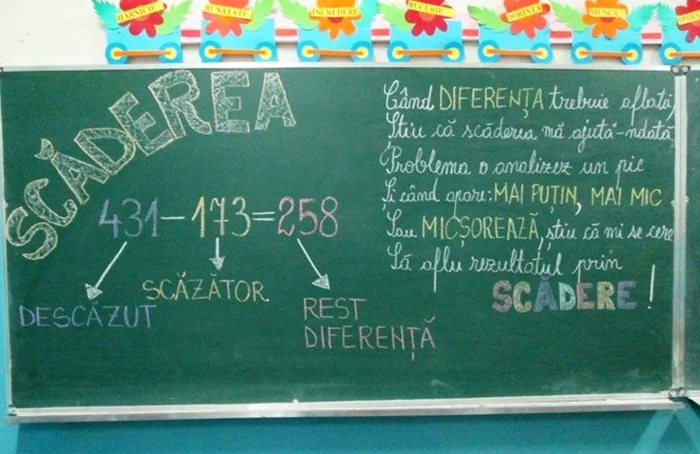 HĂRNICIE
BUNĂTATE
ÎNCREDERE
BUCURIE
DORINȚA
MUNCA
SCĂDEREA
431 – 173 = 258
DESCĂZUT
SCĂZĂTOR
REST
DIFERENȚĂ
Când DIFERENȚA trebuie aflată,
Știu că scăderea mă ajută-ndată
Problema o analizez un pic
Și când apare: MAI PUȚIN, MAI MIC
Sau MICȘOREAZĂ, știu că mi se cere
Să aflu rezultatul prin
SCĂDERE!